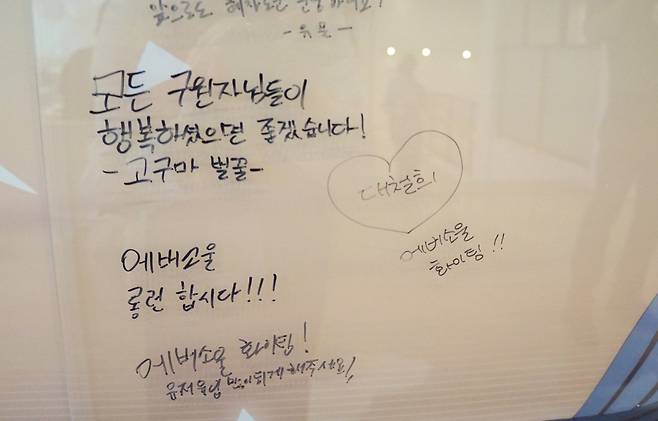 앞으로도 혜자로운 운영 하세요!
- 유물 -
모든 구원자님들이
행복하셨으면 좋겠습니다!
- 고구마 벌꿀 -
대철희
에버소울
화이팅!!
에버소울
롱런 합시다!!!
에버소울 화이팅!